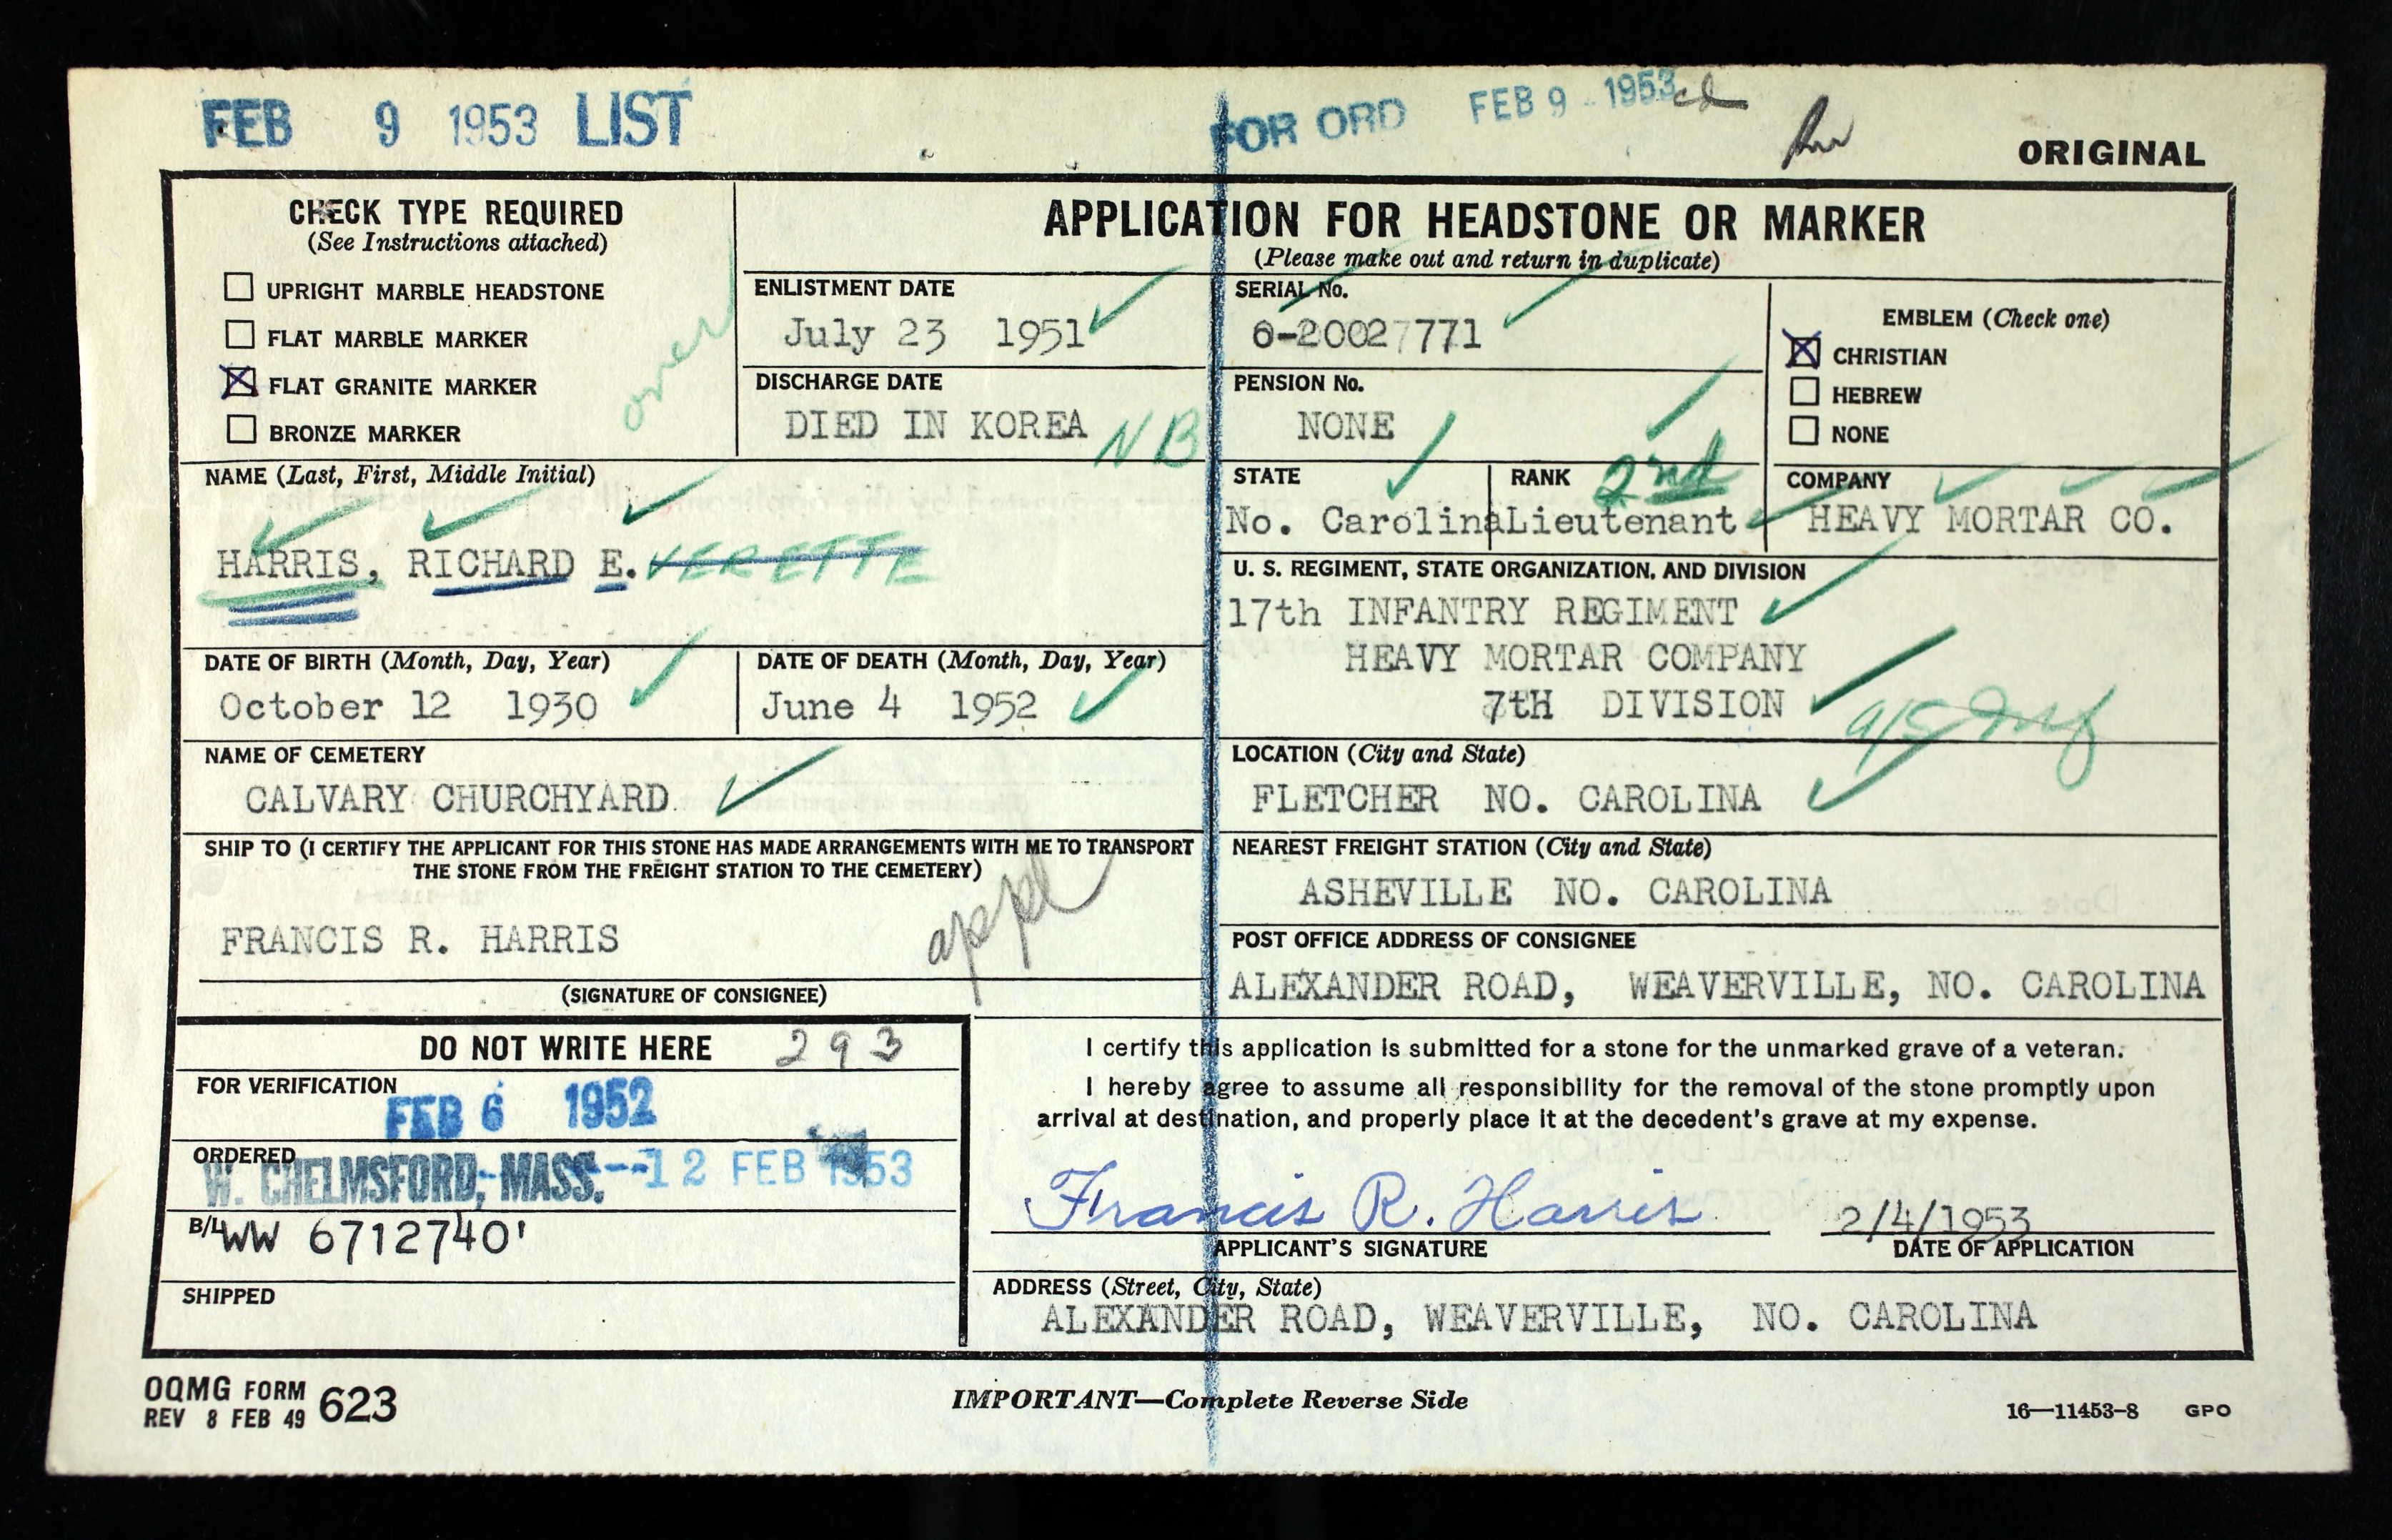 FEB 9 1953 LIST
FOR ORD FEB 9 1953
ORIGINAL
CHECK TYPE REQUIRED
(See Instructions attached)
UPRIGHT MARBLE HEADSTONE
FLAT MARBLE MARKER
FLAT GRANITE MARKER
BRONZE MARKER
over
APPLICATION FOR HEADSTONE OR MARKER
(Please make out and return in duplicate)
ENLISTMENT DATE
July 23 1951
SERIAL No.
0-20027771
EMBLEM (Check one)
CHRISTIAN
HEBREW
NONE
DISCHARGE DATE
DIED IN KOREA NB
PENSION No.
NONE
NAME (Last, First, Middle Initial)
HARRIS, RICHARD E. VERETTE
STATE
No. Carolina
RANK 2nd
Lieutenant
COMPANY
HEAVY MORTAR CO.
U. S. REGIMENT, STATE ORGANIZATION, AND DIVISION
17th INFANTRY REGIMENT
HEAVY MORTAR COMPANY
7tH DIVISION
DATE OF BIRTH (Month, Day, Year)
October 12 1930
DATE OF DEATH (Month, Day, Year)
June 4 1952
NAME OF CEMETERY
CALVARY CHURCHYARD
LOCATION (City and State)
FLETCHER NO. CAROLINA
SHIP TO (I CERTIFY THE APPLICANT FOR THIS STONE HAS MADE ARRANGEMENTS WITH ME TO TRANSPORT
THE STONE FROM THE FREIGHT STATION TO THE CEMETERY)
appl
FRANCIS R. HARRIS
(SIGNATURE OF CONSIGNEE)
NEAREST FREIGHT STATION (City and State)
ASHEVILLE NO. CAROLINA
POST OFFICE ADDRESS OF CONSIGNEE
ALEXANDER ROAD, WEAVERVILLE, NO. CAROLINA
DO NOT WRITE HERE 293
FOR VERIFICATION
FEB 6 1952
ORDERED
W. CHELMSFORD, MASS. --12 FEB 1953
B/L WW 6712740
SHIPPED
I certify this application is submitted for a stone for the unmarked grave of a veteran.
I hereby agree to assume all responsibility for the removal of the stone promptly upon
arrival at destination, and properly place it at the decedent's grave at my expense.
Francis R. Harris 2/4/1953
APPLICANT'S SIGNATURE DATE OF APPLICATION
ADDRESS (Street, City, State)
ALEXANDER ROAD, WEAVERVILLE, NO. CAROLINA
OQMG FORM 623
REV 8 FEB 49
IMPORTANT—Complete Reverse Side
16—11453-8 GPO